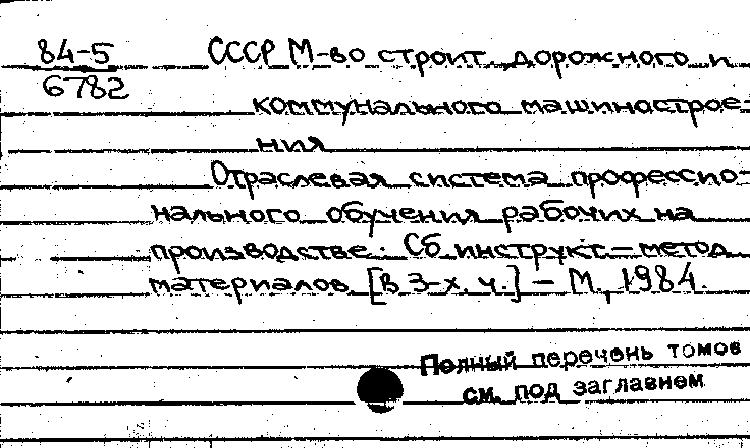 84-5
6782
СССР М-во строит., дорожного и
коммунального машинострое-
ния
Отраслевая система профессио-
нального обучения рабочих на
производстве: Сб инструкт.-метод
материалов [в 3-х. ч.] - М., 1984.
Полный перечень томов
см. под заглавием